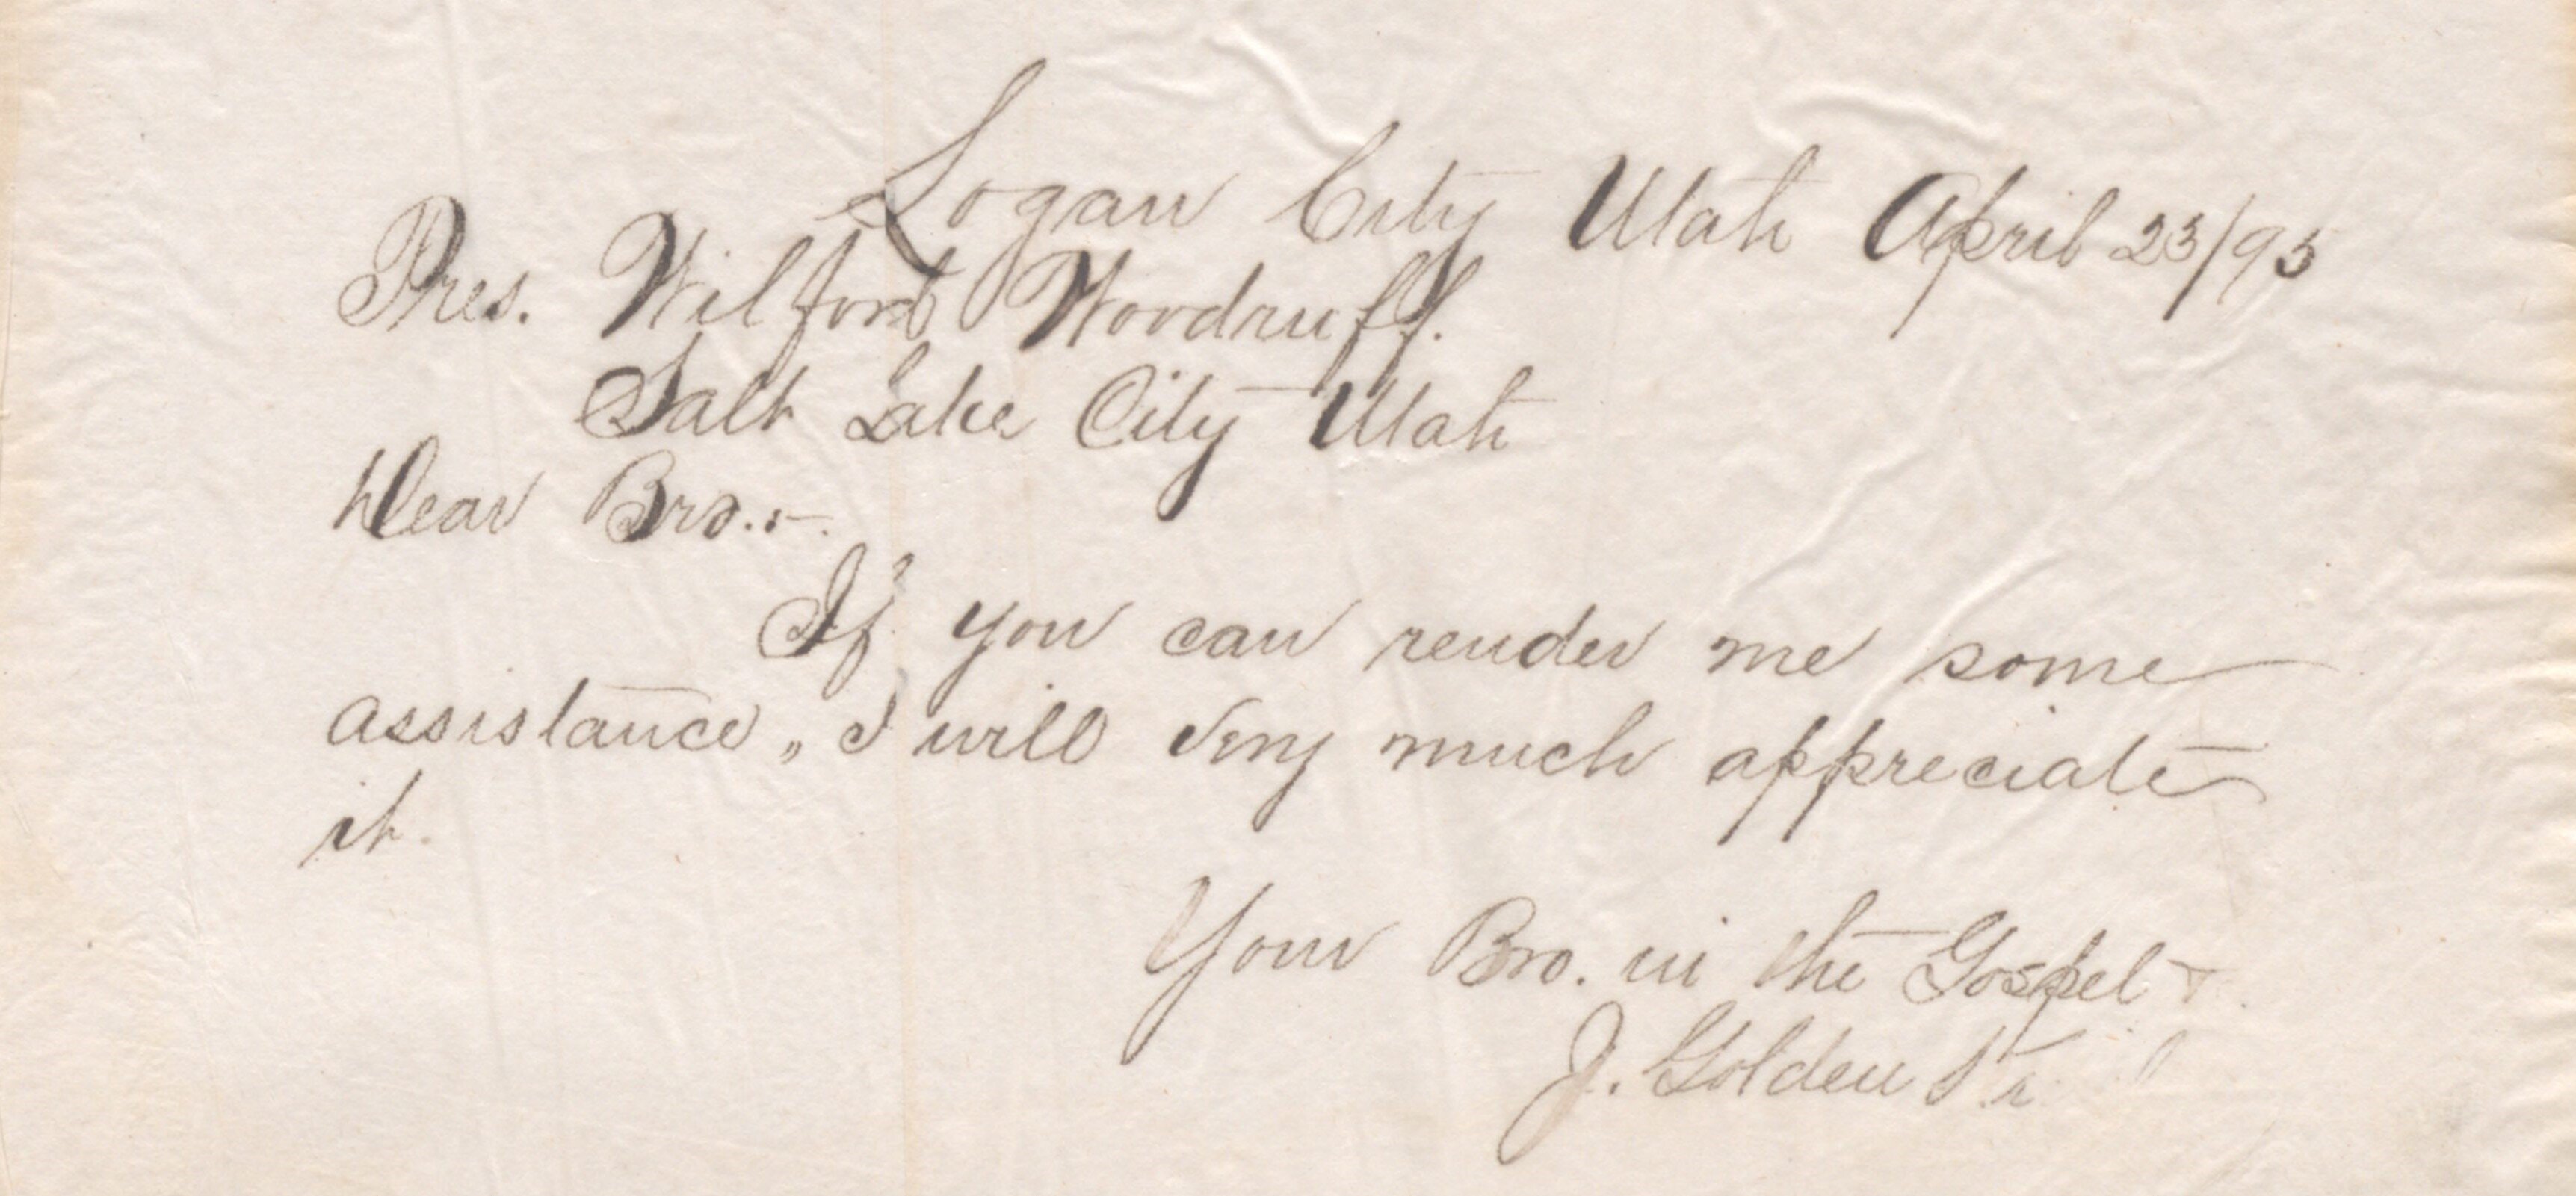 Logan City Utah April 23/95
Pres. Wilford Woodruff.
Salt Lake City Utah
Dear Bro.:-
If you can render me some
assistance, I will very much appreciate
it.
Your Bro. in the Gospel
J. Golden